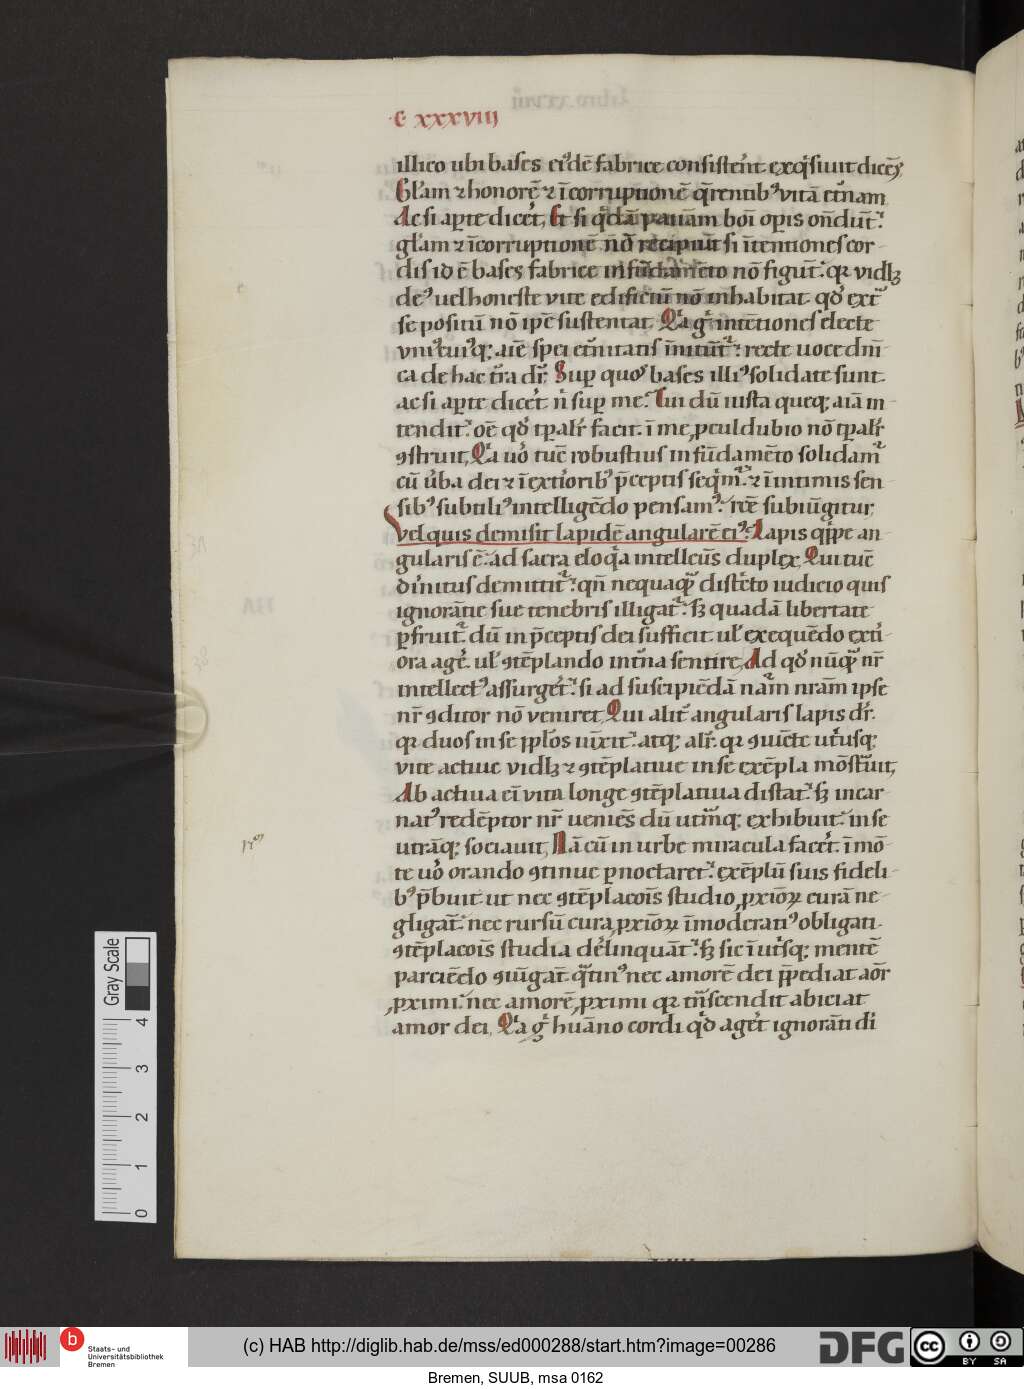 C xxxviii
illico ubi bases ei᷒dē fabrice consistēnt exq̇siuit dicēs,
Glāam ⁊ honorē ⁊ īcorruptionē q̄rentib᷒ vitā et̄nam
Ac si aꝑte dicet̄, Et si qd̄ā pauam boī oꝑis on̄dūt᷑.
glāam ⁊ īcorruptionē nō recipiūt si ītentiones cor-
dis id ē bases fabrice in fūdamēto nō figūt᷑. qꝛ vidlꝫ
de᷒ uel honeste vite edificiū nō inhabitat qd̄ ext᷑
se positū nō ipē sustentat. Qͥa gͥ intētiones electe
vni᷒cui᷒qꝫ aīe spei et̄nitatis īnitūt᷑. recte uoce dnī-
ca de hac t̄ra dr̄. Suꝑ quos bases illi᷒ solidate sunt
ac si aꝑte dicet̄ nͥ suꝑ me. Cui dū iusta queqꝫ aīā in-
tendit᷑. oē qd̄ tꝑalr̄ facit. ī me ꝓculdubio nō tꝑalr̄
ꝯstruit. Qͥa uō tūc robustius in fūdamēto solidam᷑
cū ūba dei ⁊ ī extiorib᷒ p̄ceptis seqͥm᷑. ⁊ ī intimis sen-
sib᷒ subtili᷒ intelligēdo pensam᷒. rc̄e subiūgitur,
Vel quis demisit lapidē angularē ei᷒. Lapis qͥppe an-
gularis ē. ad sacra eloqͥa intellc̄us duplex, Qui tūc
diinitus demittit᷑. qn̄ nequaqͣ distͥcto iudicio quis
ignorātie sue tenebris illigat᷑. sꝫ quadā libertate
ꝑfruit᷑. dū in p̄ceptis dei sufficit ul̄ exequēdo exti-
ora agē. ul̄ ꝯtēplando int̄na sentire, Ad qd̄ nūqͣ nr̄
intellect᷒ assurget̄. si ad suscipiēdā nām nrām ipse
nr̄ ꝯditor nō veniret, Qui alit̄ angularis lapis dr̄.
qꝛ duos in se ppl̄os iūxit. atqꝫ alr̄. qꝛ ꝯuiēte ut̄usqꝫ
vite actiue vidlꝫ ⁊ ꝯtēplatiue in se exēpla mōstͣuit,
Ab actiua ei᷒ vita longe ꝯtēplatiua distat. sꝫ incar-
nat᷒ redēptor nr̄ ueniēs dū utͣmqꝫ exhibuit. in se
utrāqꝫ sociauit, Nā cū in urbe miracula facet̄. ī mō-
te uō orando ꝯtinue ꝑnoctaret. exēplū suis fideli-
b᷒ p̄buit ut nec ꝯtēplacoīs studio ꝓxiōꝝ curā ne-
gligāt. nec rursū cura ꝓxiōꝝ īmoderati᷒ obligati-
ꝯtēplacoīs studia delinquāt. sꝫ sic ī utͣsqꝫ mentē
parciēdo ꝯiūgāt. qͣtin᷒ nec amorē dei p̄pediat aōr
ꝓximi. nec amorē ꝓximi qꝛ tͣnscendit abiciat
amor dei. Qͥa gͥ huāno cordi qd̄ aget̄ ignorāti di
Gray Scale
4
3
2
1
0
b
Staats- und
Universitätsbibliothek
Bremen
(c) HAB http://diglib.hab.de/mss/ed000288/start.htm?image=00286
DFG
cc
BY SA
Bremen, SUUB, msa 0162